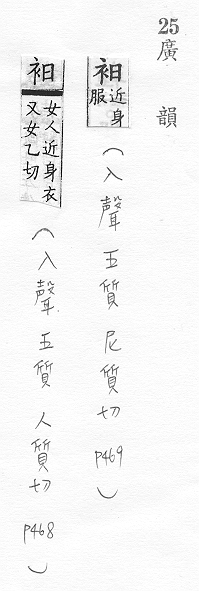 25
廣韻
衵 近身服 (入聲 五質 尼質切 p469)
衵 女人近身衣又女乙切 (入聲 五質 人質切 p468)